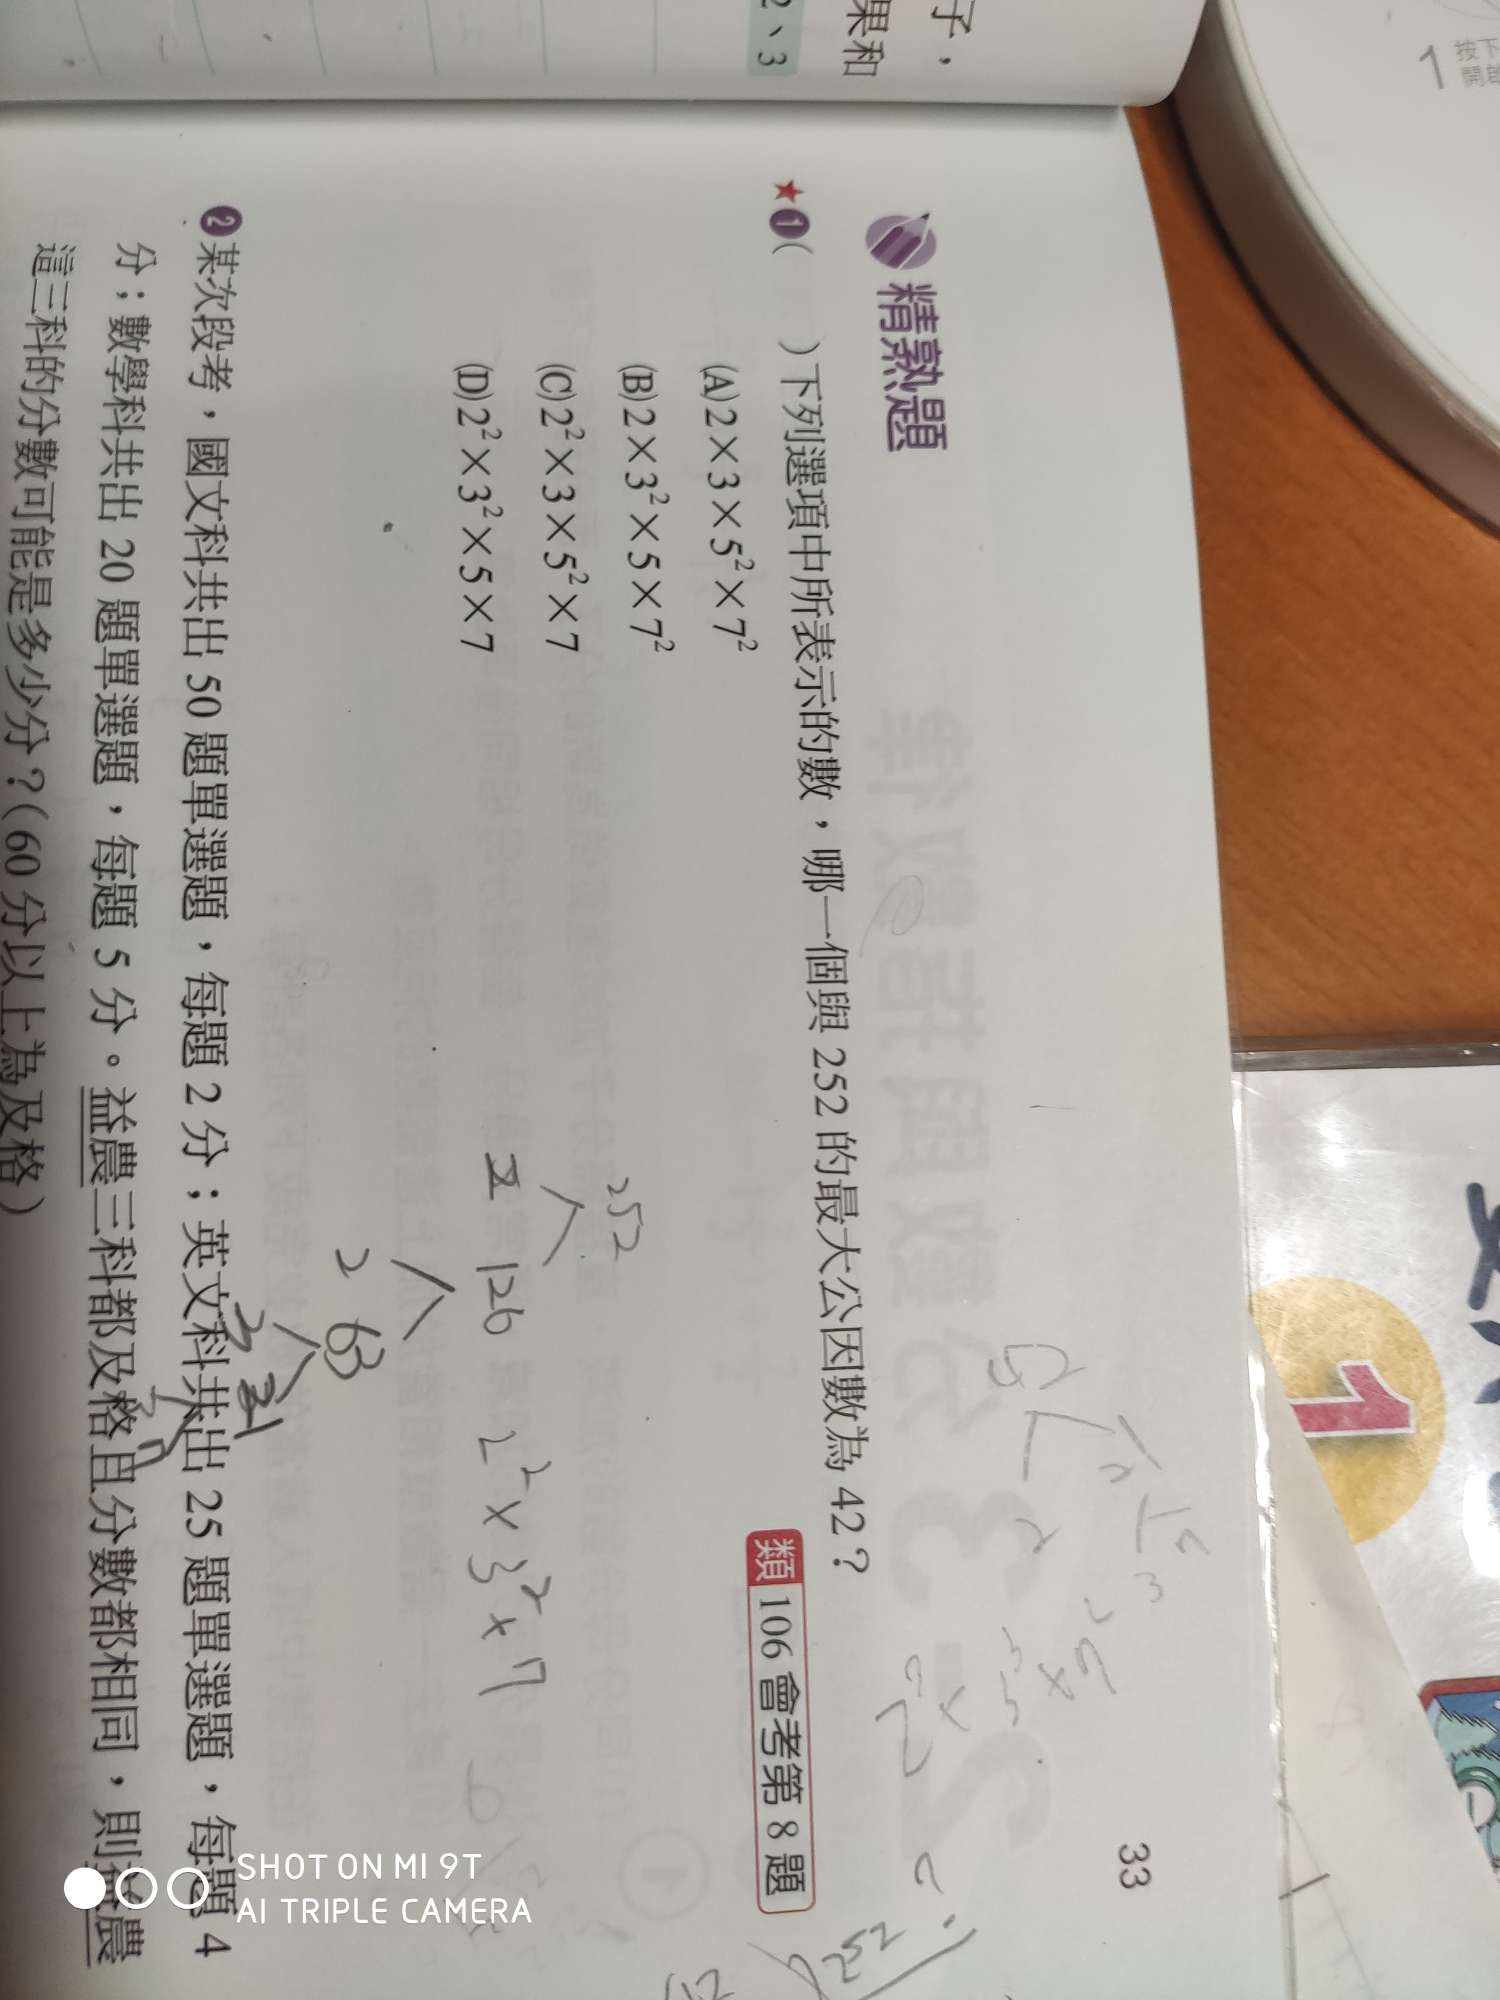 子，
果和
2、3
按下
1
33
精熟題
★❶( )下列選項中所表示的數，哪一個與 252 的最大公因數為 42？
類 106 會考第 8 題
(A)2×3×5²×7²
(B)2×3²×5×7²
(C)2²×3×5²×7
(D)2²×3²×5×7
252
2 126
2 63
3 21
3 7
2²×3²×7
52
252
❷某次段考，國文科共出 50 題單選題，每題 2 分；英文科共出 25 題單選題，每題 4
分；數學科共出 20 題單選題，每題 5 分。益農三科都及格且分數都相同，則益農
這三科的分數可能是多少分？(60 分以上為及格)
1
SHOT ON MI 9T
AI TRIPLE CAMERA